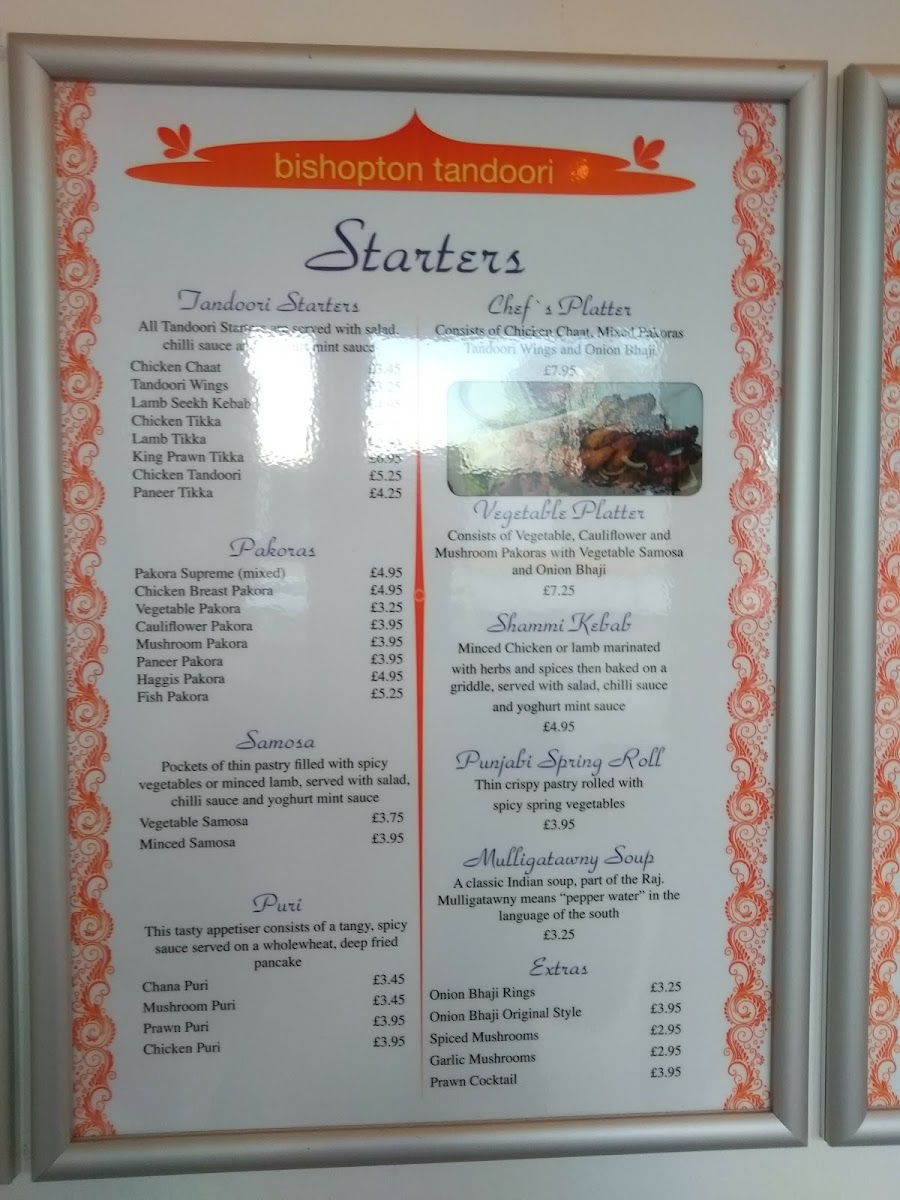 bishopton tandoori
Starters
Tandoori Starters
All Tandoori Starters are served with salad,
chilli sauce mint sauce
Chicken Chaat £3.45
Tandoori Wings
Lamb Seekh Kebab
Chicken Tikka
Lamb Tikka
King Prawn Tikka £6.95
Chicken Tandoori £5.25
Paneer Tikka £4.25
Pakoras
Pakora Supreme (mixed) £4.95
Chicken Breast Pakora £4.95
Vegetable Pakora £3.25
Cauliflower Pakora £3.95
Mushroom Pakora £3.95
Paneer Pakora £3.95
Haggis Pakora £4.95
Fish Pakora £5.25
Samosa
Pockets of thin pastry filled with spicy
vegetables or minced lamb, served with salad,
chilli sauce and yoghurt mint sauce
Vegetable Samosa £3.75
Minced Samosa £3.95
Puri
This tasty appetiser consists of a tangy, spicy
sauce served on a wholewheat, deep fried
pancake
Chana Puri £3.45
Mushroom Puri £3.45
Prawn Puri £3.95
Chicken Puri £3.95
Chef`s Platter
Consists of Chicken Chaat, Mixed Pakoras
Tandoori Wings and Onion Bhaji
£7.95
Vegetable Platter
Consists of Vegetable, Cauliflower and
Mushroom Pakoras with Vegetable Samosa
and Onion Bhaji
£7.25
Shammi Kebab
Minced Chicken or lamb marinated
with herbs and spices then baked on a
griddle, served with salad, chilli sauce
and yoghurt mint sauce
£4.95
Punjabi Spring Roll
Thin crispy pastry rolled with
spicy spring vegetables
£3.95
Mulligatawny Soup
A classic Indian soup, part of the Raj.
Mulligatawny means “pepper water” in the
language of the south
£3.25
Extras
Onion Bhaji Rings £3.25
Onion Bhaji Original Style £3.95
Spiced Mushrooms £2.95
Garlic Mushrooms £2.95
Prawn Cocktail £3.95